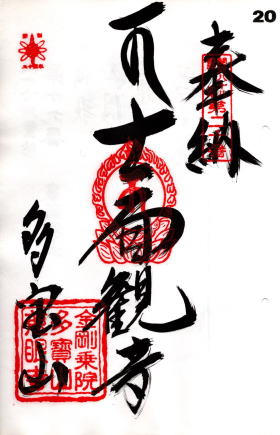 20
奉納
十一面観音
多宝山
金剛乗院
多寶山